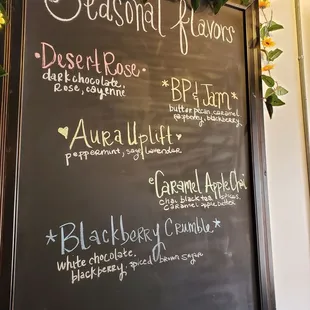 Seasonal flavors
·Desert Rose·
dark chocolate,
Rose, cayenne
*BP & Jam*
butter pecan, caramel
raspberry, blackberry.
Aura Uplift
peppermint, sage lavender
Caramel Apple Chai
chai black tea & spices,
caramel apple butter
*Blackberry Crumble*
white chocolate,
blackberry, spiced brown sugar